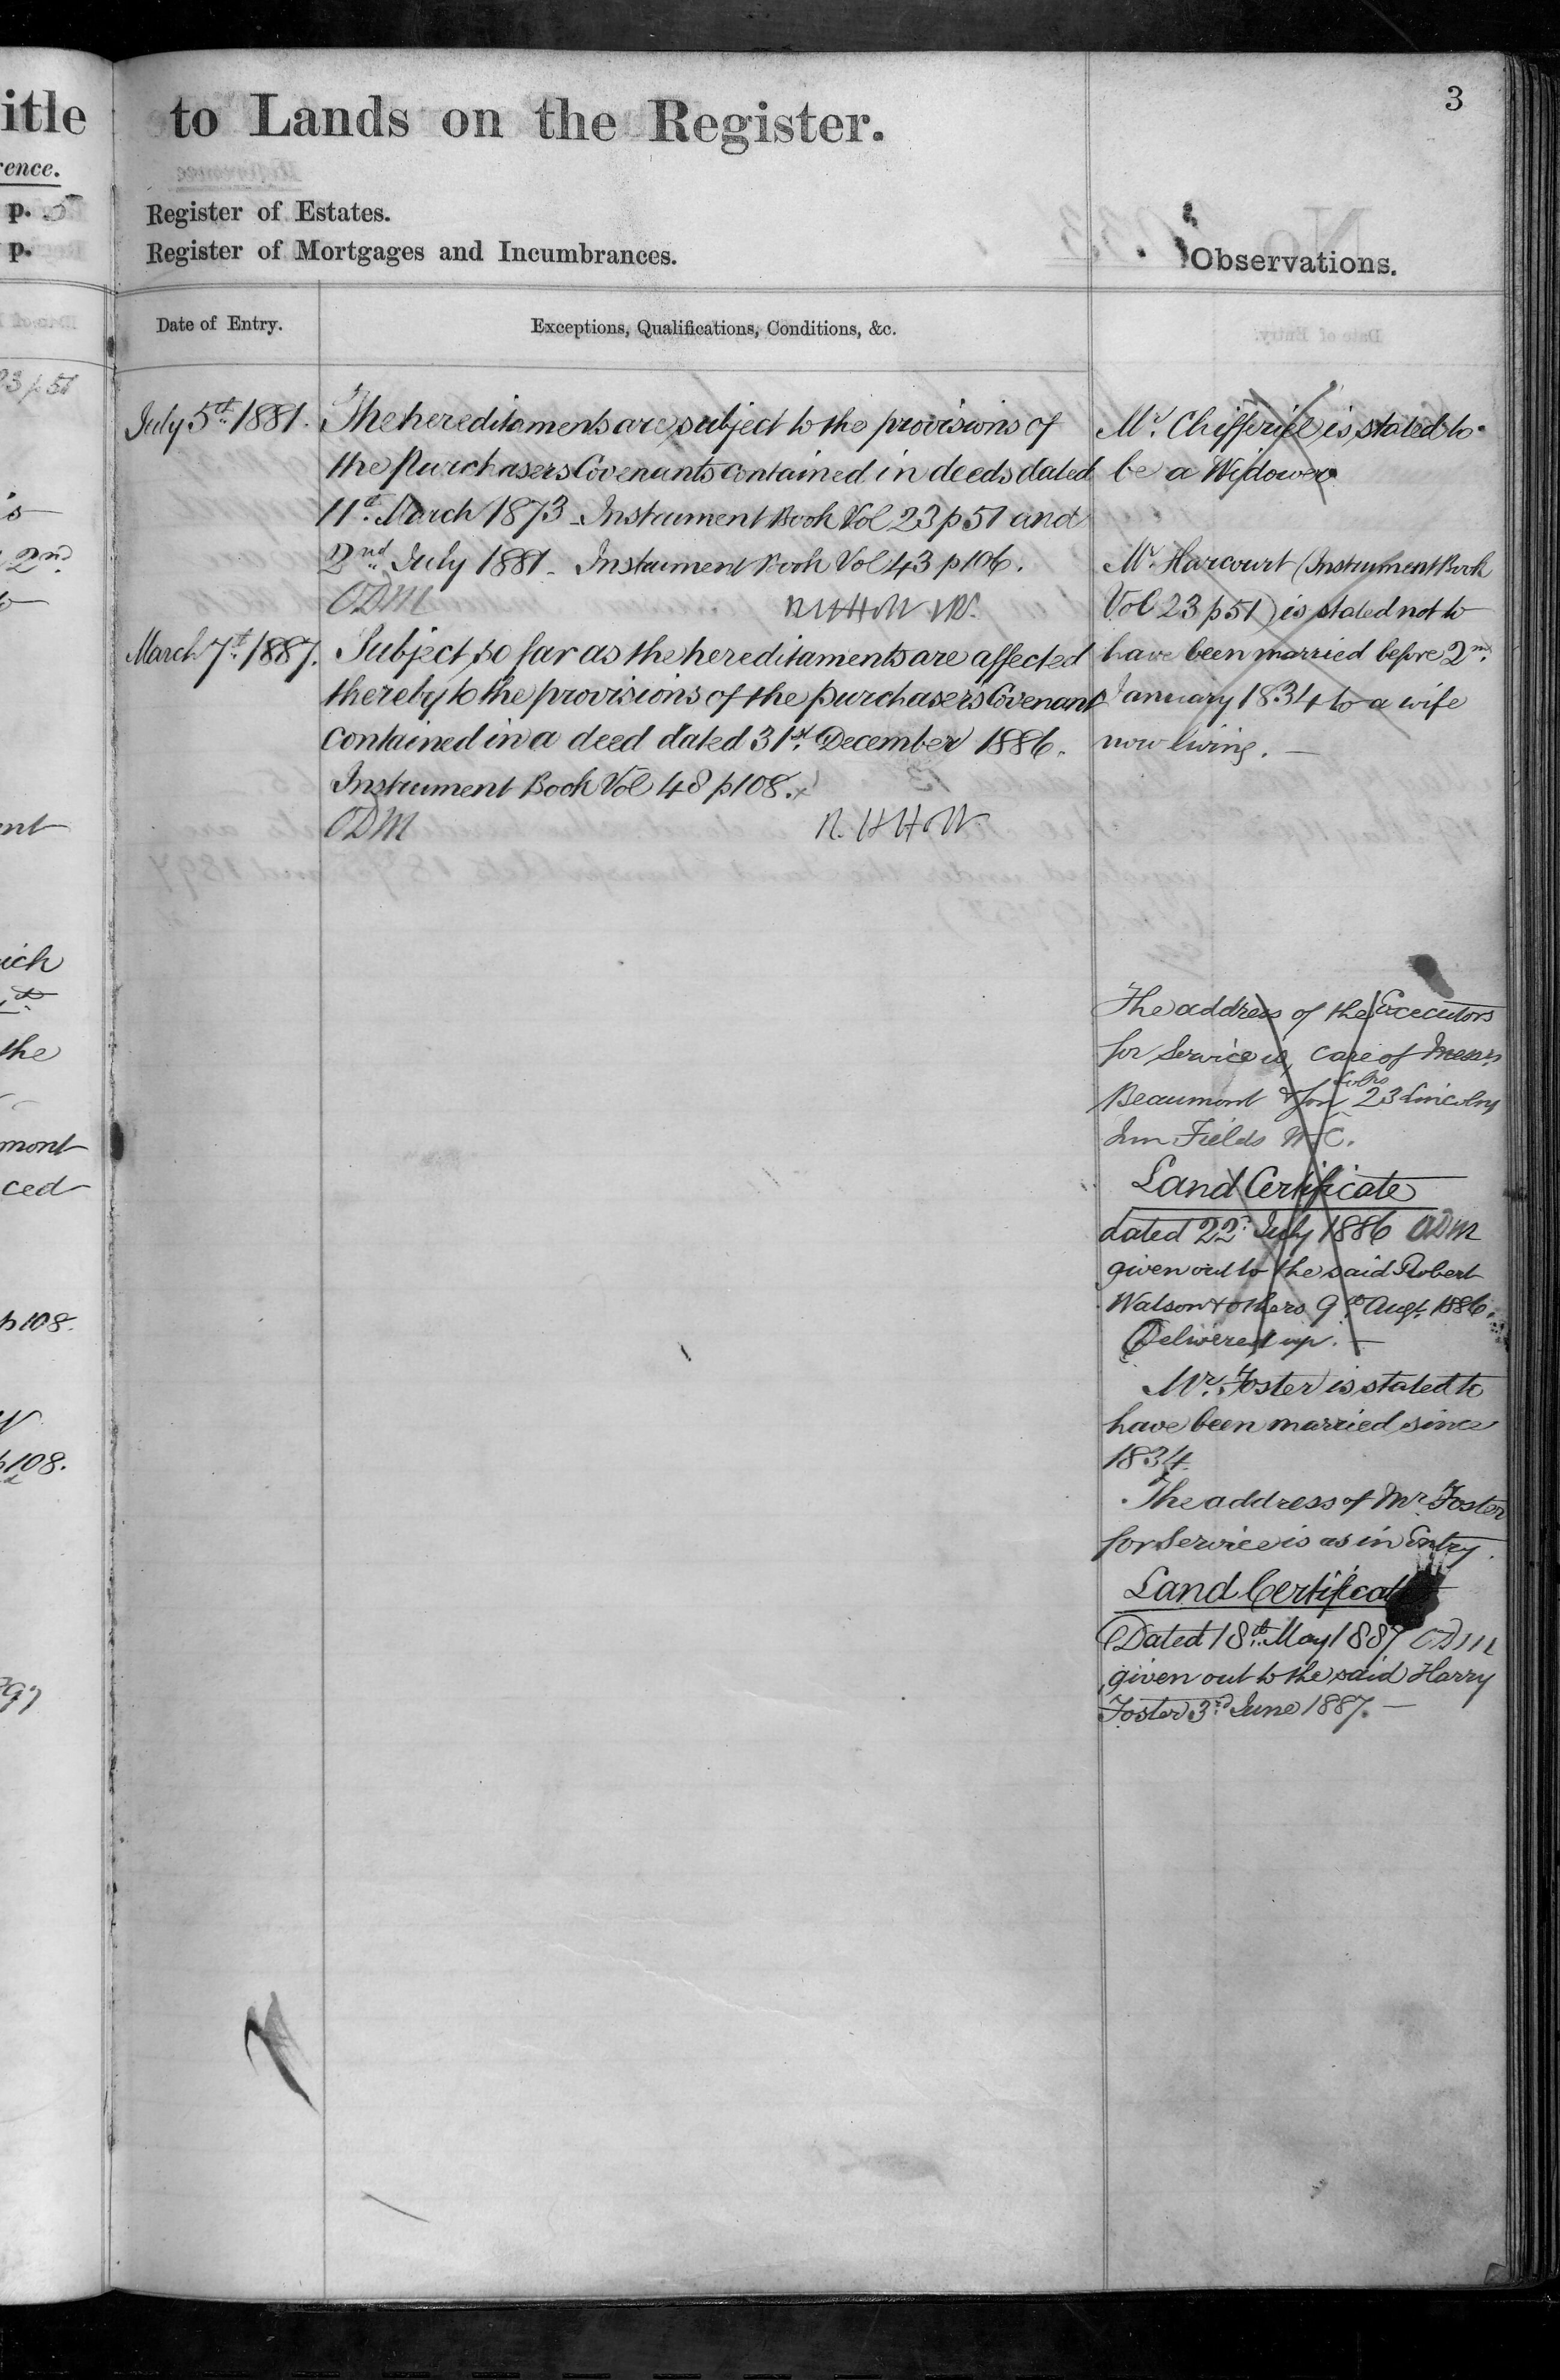 3
itle to Lands on the Register.
rence.
p. 5 Register of Estates.
p. Register of Mortgages and Incumbrances.
Observations.
Date of Entry. Exceptions, Qualifications, Conditions, &c.
July 5th 1881. The hereditaments are subject to the provisions of
the Purchasers Covenants contained in deeds dated
11th March 1873 – Instrument Book Vol 23 p 51 and
2nd July 1881 – Instrument Book Vol 43 p 106.
ODM
March 7th 1887. Subject so far as the hereditaments are affected
thereby to the provisions of the purchaser's Covenant
contained in a deed dated 31st December 1886.
Instrument Book Vol 48 p 108.
ODM
Mr. Chifferiel is stated to
be a Widower
Mr. Harcourt (Instrument Book
Vol 23 p 51) is stated not to
have been married before 2nd
January 1834 to a wife
now living. –
The address of the Executors
for Service is, care of Messrs
Beaumont & Son Solrs 23 Lincolns
Inn Fields W.C.
Land Certificate
dated 22nd July 1886 ODM
given out to the said Robert
Watson & others 9th Augt. 1886.
Delivered up. –
Mr. Foster is stated to
have been married since
1834.
The address of Mr. Foster
for Service is as in Entry.
Land Certificate
Dated 18th May 1887 ODM
given out to the said Harry
Foster 3rd June 1887. –
23 p 51
2nd
ich
the
mont
ced
p 108.
p 108.